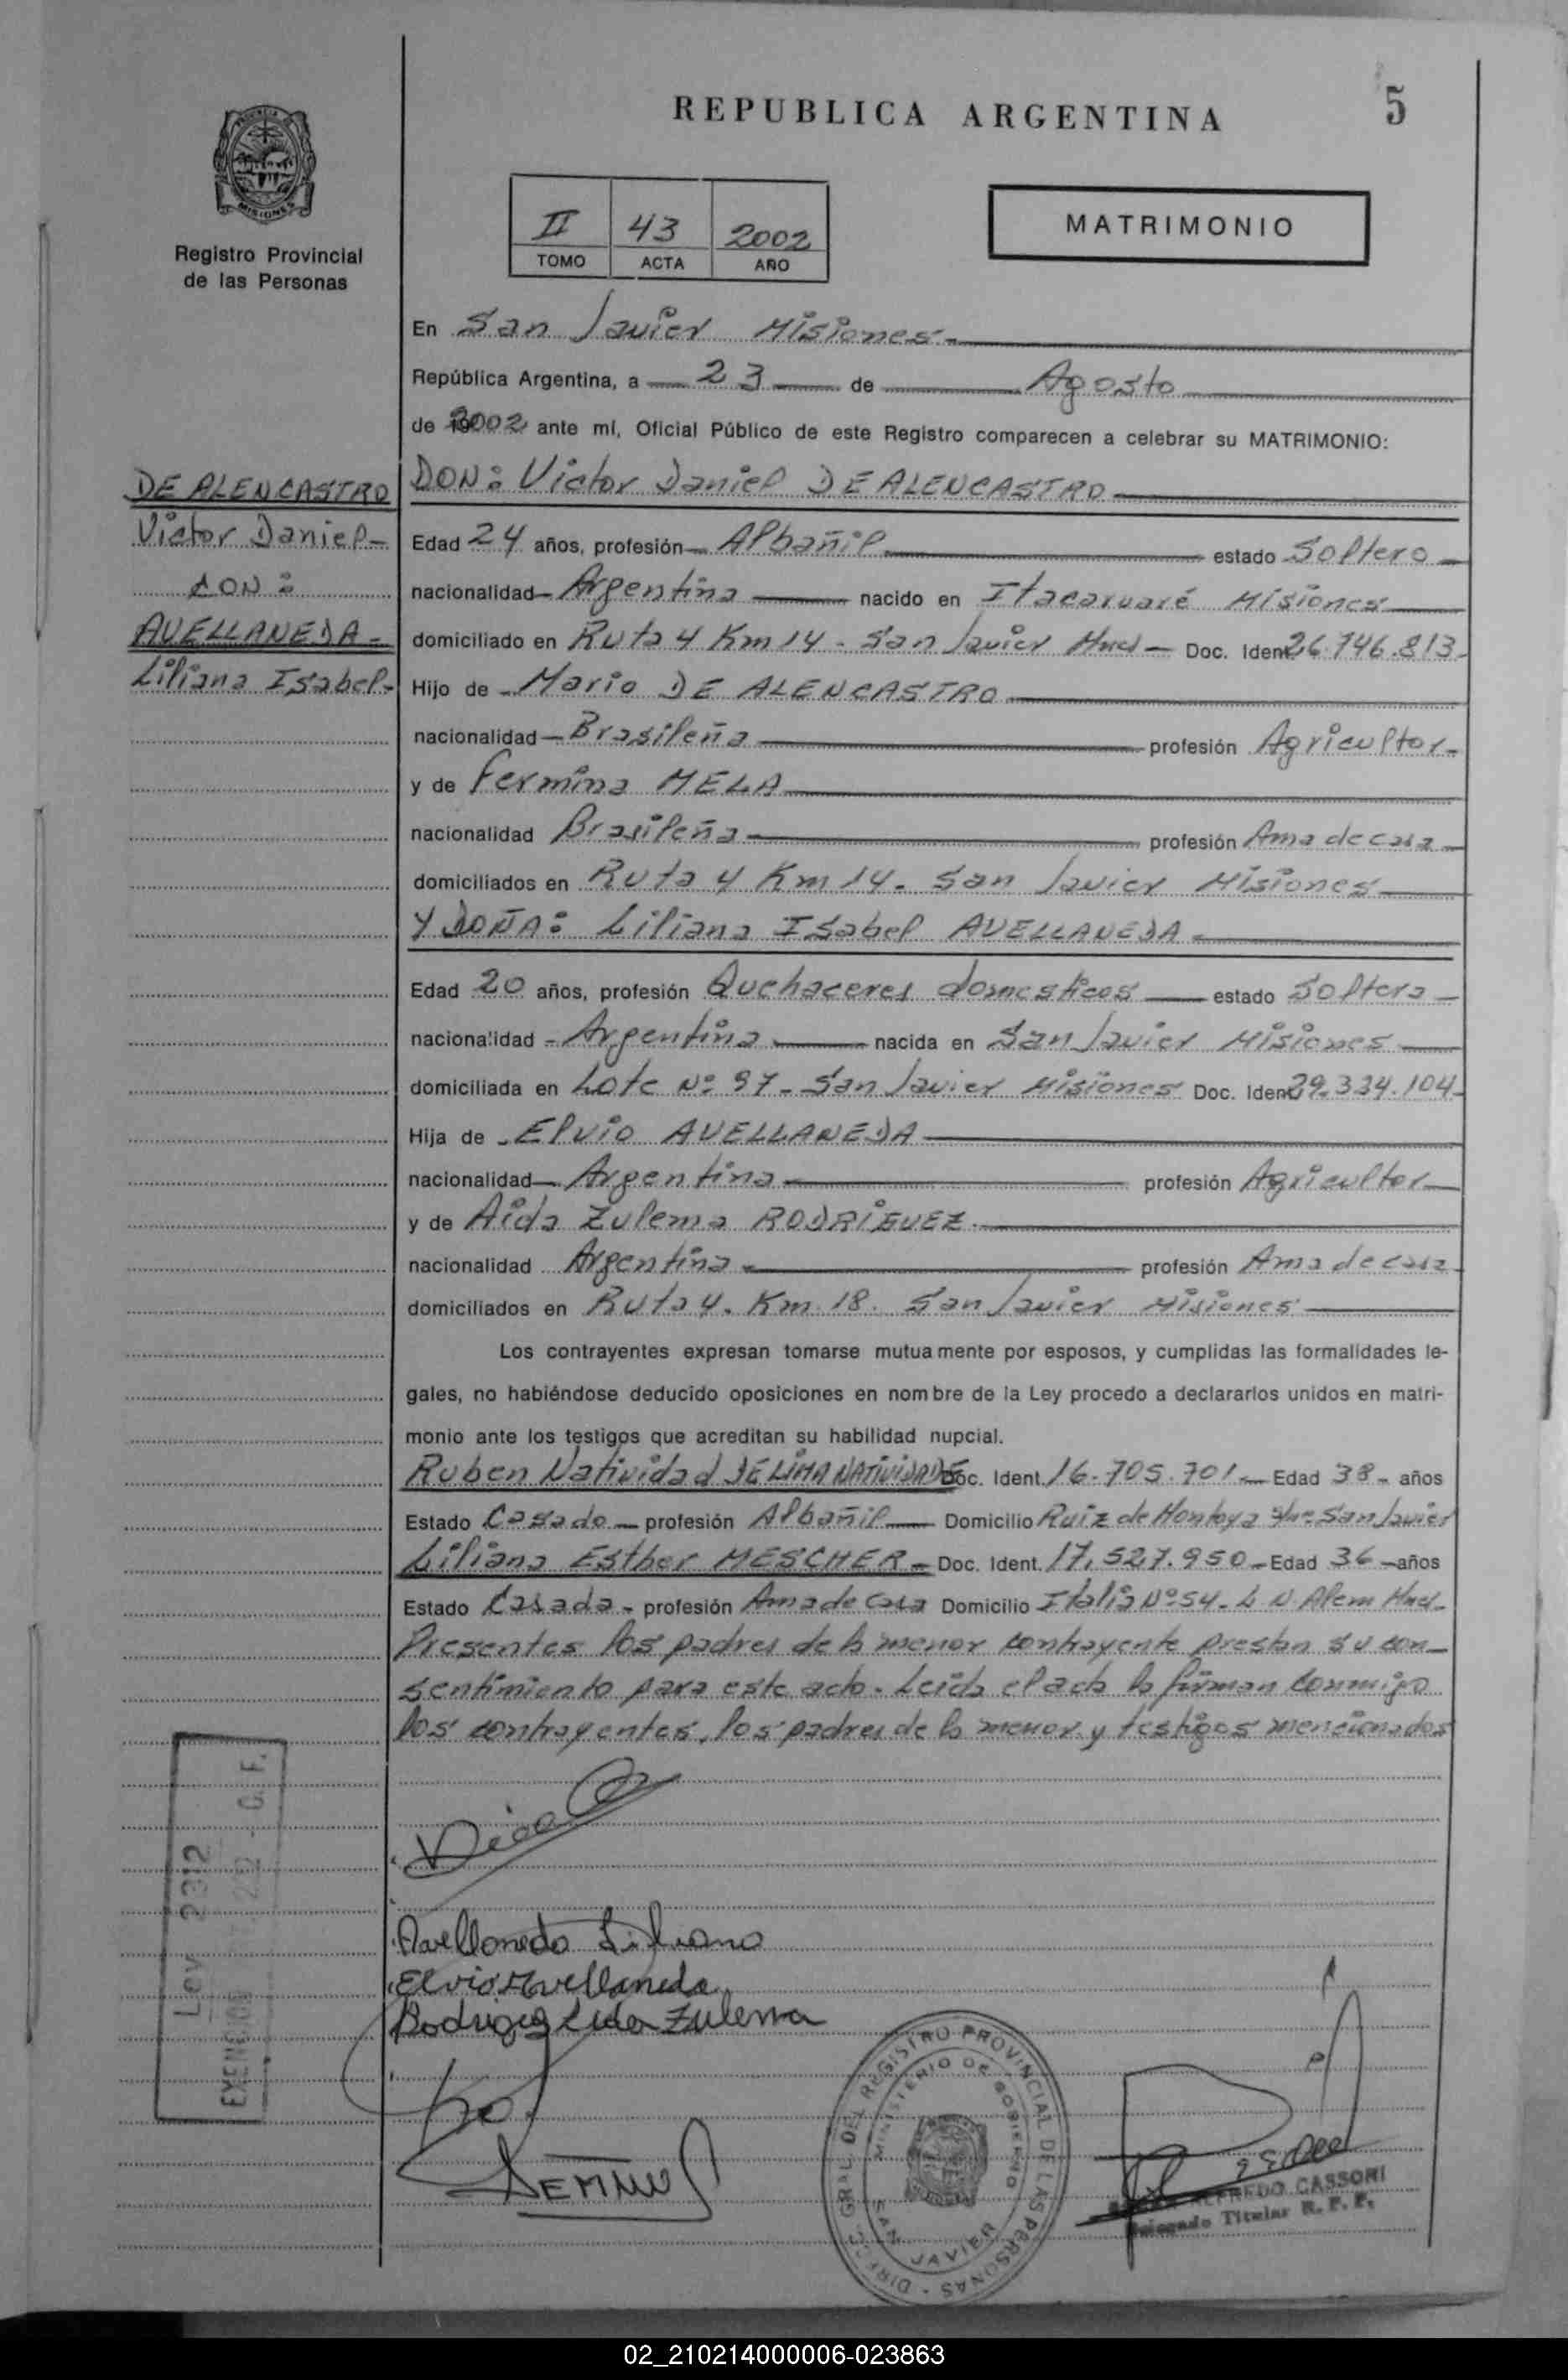 REPUBLICA ARGENTINA
5
PROVINCIA DE MISIONES
Registro Provincial
de las Personas
II 43 2002
TOMO ACTA AÑO
MATRIMONIO
En San Javier Misiones
República Argentina, a 23 de Agosto
de 2002 ante mí, Oficial Público de este Registro comparecen a celebrar su MATRIMONIO:
DE ALENCASTRO
Victor Daniel
CON:
AVELLANEDA
Liliana Isabel
DON: Victor Daniel DE ALENCASTRO
Edad 24 años, profesión Albañil estado Soltero
nacionalidad Argentina nacido en Itacaruaré Misiones
domiciliado en Ruta 4 Km 14 - San Javier Mnes Doc. Ident. 26.746.813
Hijo de Mario DE ALENCASTRO
nacionalidad Brasileña profesión Agricultor
y de Fermina MELA
nacionalidad Brasileña profesión Ama de casa
domiciliados en Ruta 4 Km 14. San Javier Misiones
Y DOÑA: Liliana Isabel AVELLANEDA
Edad 20 años, profesión Quehaceres domesticos estado Soltera
nacionalidad Argentina nacida en San Javier Misiones
domiciliada en Lote Nº 97 - San Javier Misiones Doc. Ident. 29.334.104
Hija de Elvio AVELLANEDA
nacionalidad Argentina profesión Agricultor
y de Aida Zulema RODRIGUEZ
nacionalidad Argentina profesión Ama de casa
domiciliados en Ruta 4. Km 18. San Javier Misiones
Los contrayentes expresan tomarse mutuamente por esposos, y cumplidas las formalidades le-
gales, no habiéndose deducido oposiciones en nombre de la Ley procedo a declararlos unidos en matri-
monio ante los testigos que acreditan su habilidad nupcial.
Ruben Natividad DE LIMA NATIVIDADE Doc. Ident. 16.705.701 Edad 38 años
Estado Casado profesión Albañil Domicilio Ruiz de Montoya San Javier
Liliana Esther MESCHER Doc. Ident. 17.527.950 Edad 36 años
Estado Casada profesión Ama de casa Domicilio Italia Nº 54. L N Alem Mnes
Presentes los padres de la menor contrayente prestan su con-
sentimiento para este acto. Leida el acta la firman conmigo
los contrayentes, los padres de la menor y testigos mencionados
Avellaneda Liliana
Elvio Avellaneda
Rodriguez Aida Zulema
Ley 2312
EXENCION
DIREC. GRAL. DEL REGISTRO PROVINCIAL DE LAS PERSONAS
MINISTERIO DE GOBIERNO
SAN JAVIER
ALFREDO CASSORI
Delegado Titular R. P. P.
02_210214000006-023863